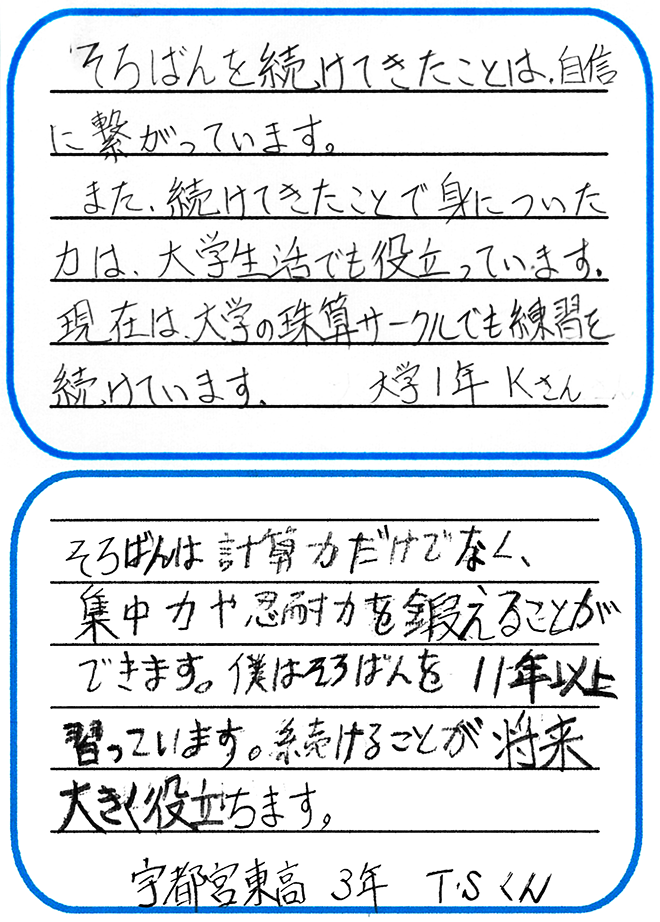 そろばんを続けてきたことは、自信
に繋がっています。
また、続けてきたことで身についた
力は、大学生活でも役立っています。
現在は、大学の珠算サークルでも練習を
続けています。 大学1年 Kさん
そろばんは計算力だけでなく、
集中力や忍耐力を鍛えることが
できます。僕はそろばんを11年以上
習っています。続けることが将来
大きく役立ちます。
宇都宮東高 3年 T・Sくん